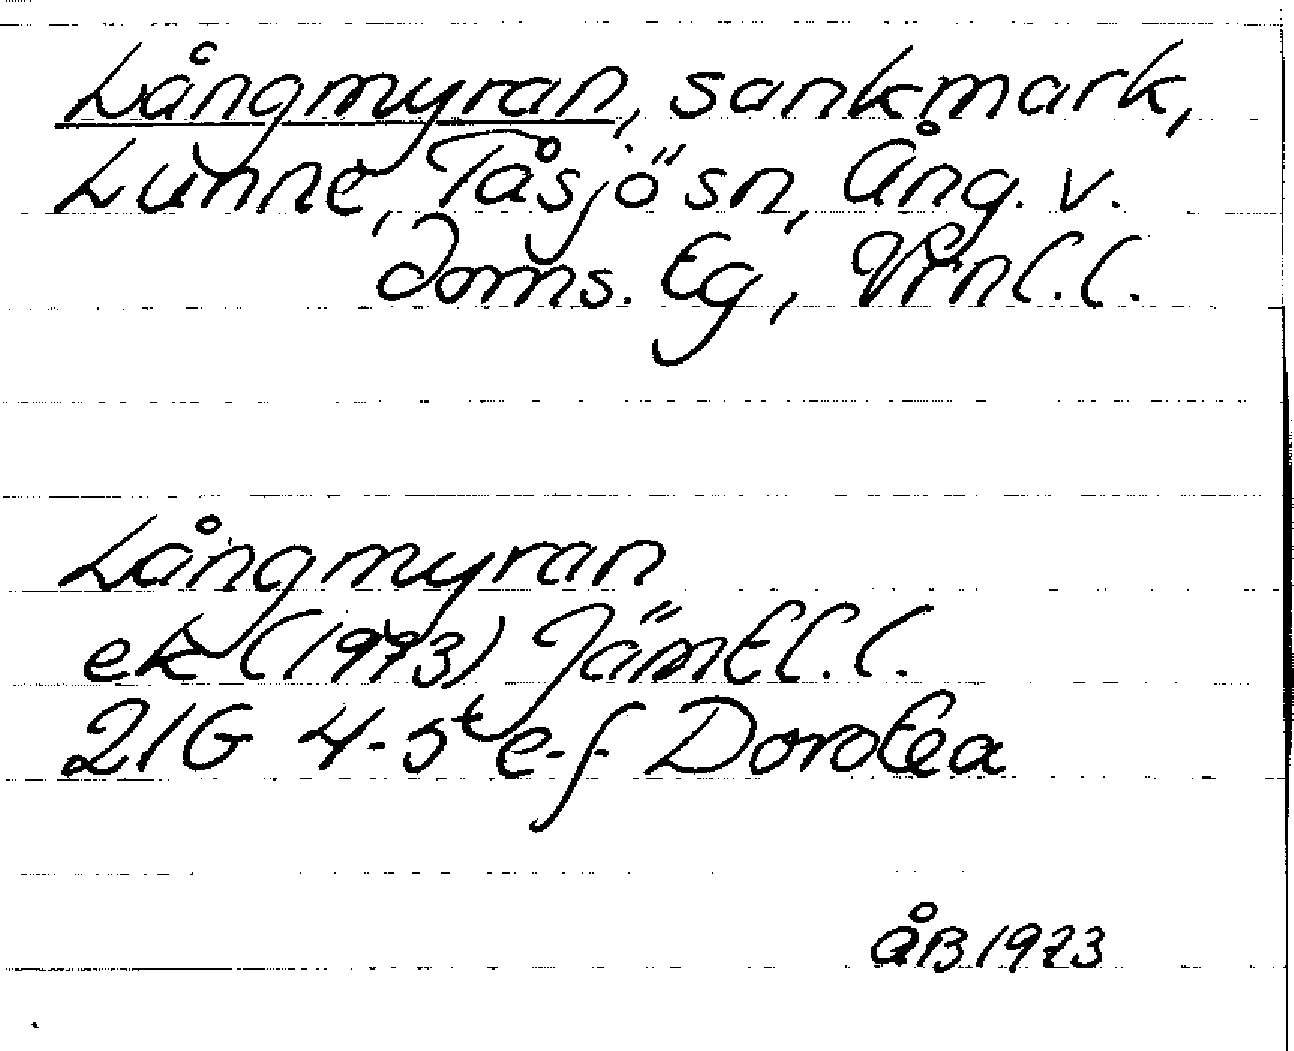 Långmyran, sankmark,
Lunne, Tåsjö sn, Ång. v.
Doms. Eg, Vrnl.l.
Långmyran
ek (1973) Jämtl.l.
21G 4-5 e-f Dorotea
ÅB 1973